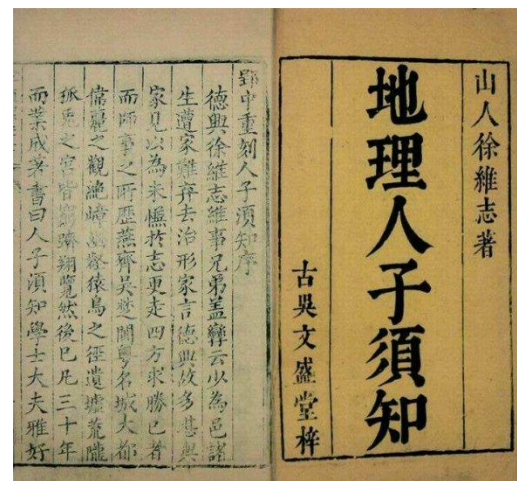 山人徐維志著
地理人子須知
古吳文盛堂梓
中重刻人子湏知序
德興徐維志維事兄弟蓋云少為邑諸
生遭家難弃去治形家言德興故多堪輿
家見以為未愜於志更走四方求勝己者
而師事之所歷燕齊吳楚閩粵名城大都
麗之觀絕嶂幽壑猿鳥之徑遺墟荒隴
狐兎之宮皆窮躋翔覽然後已凡三十年
而業成著書曰人子湏知學士大夫雅好